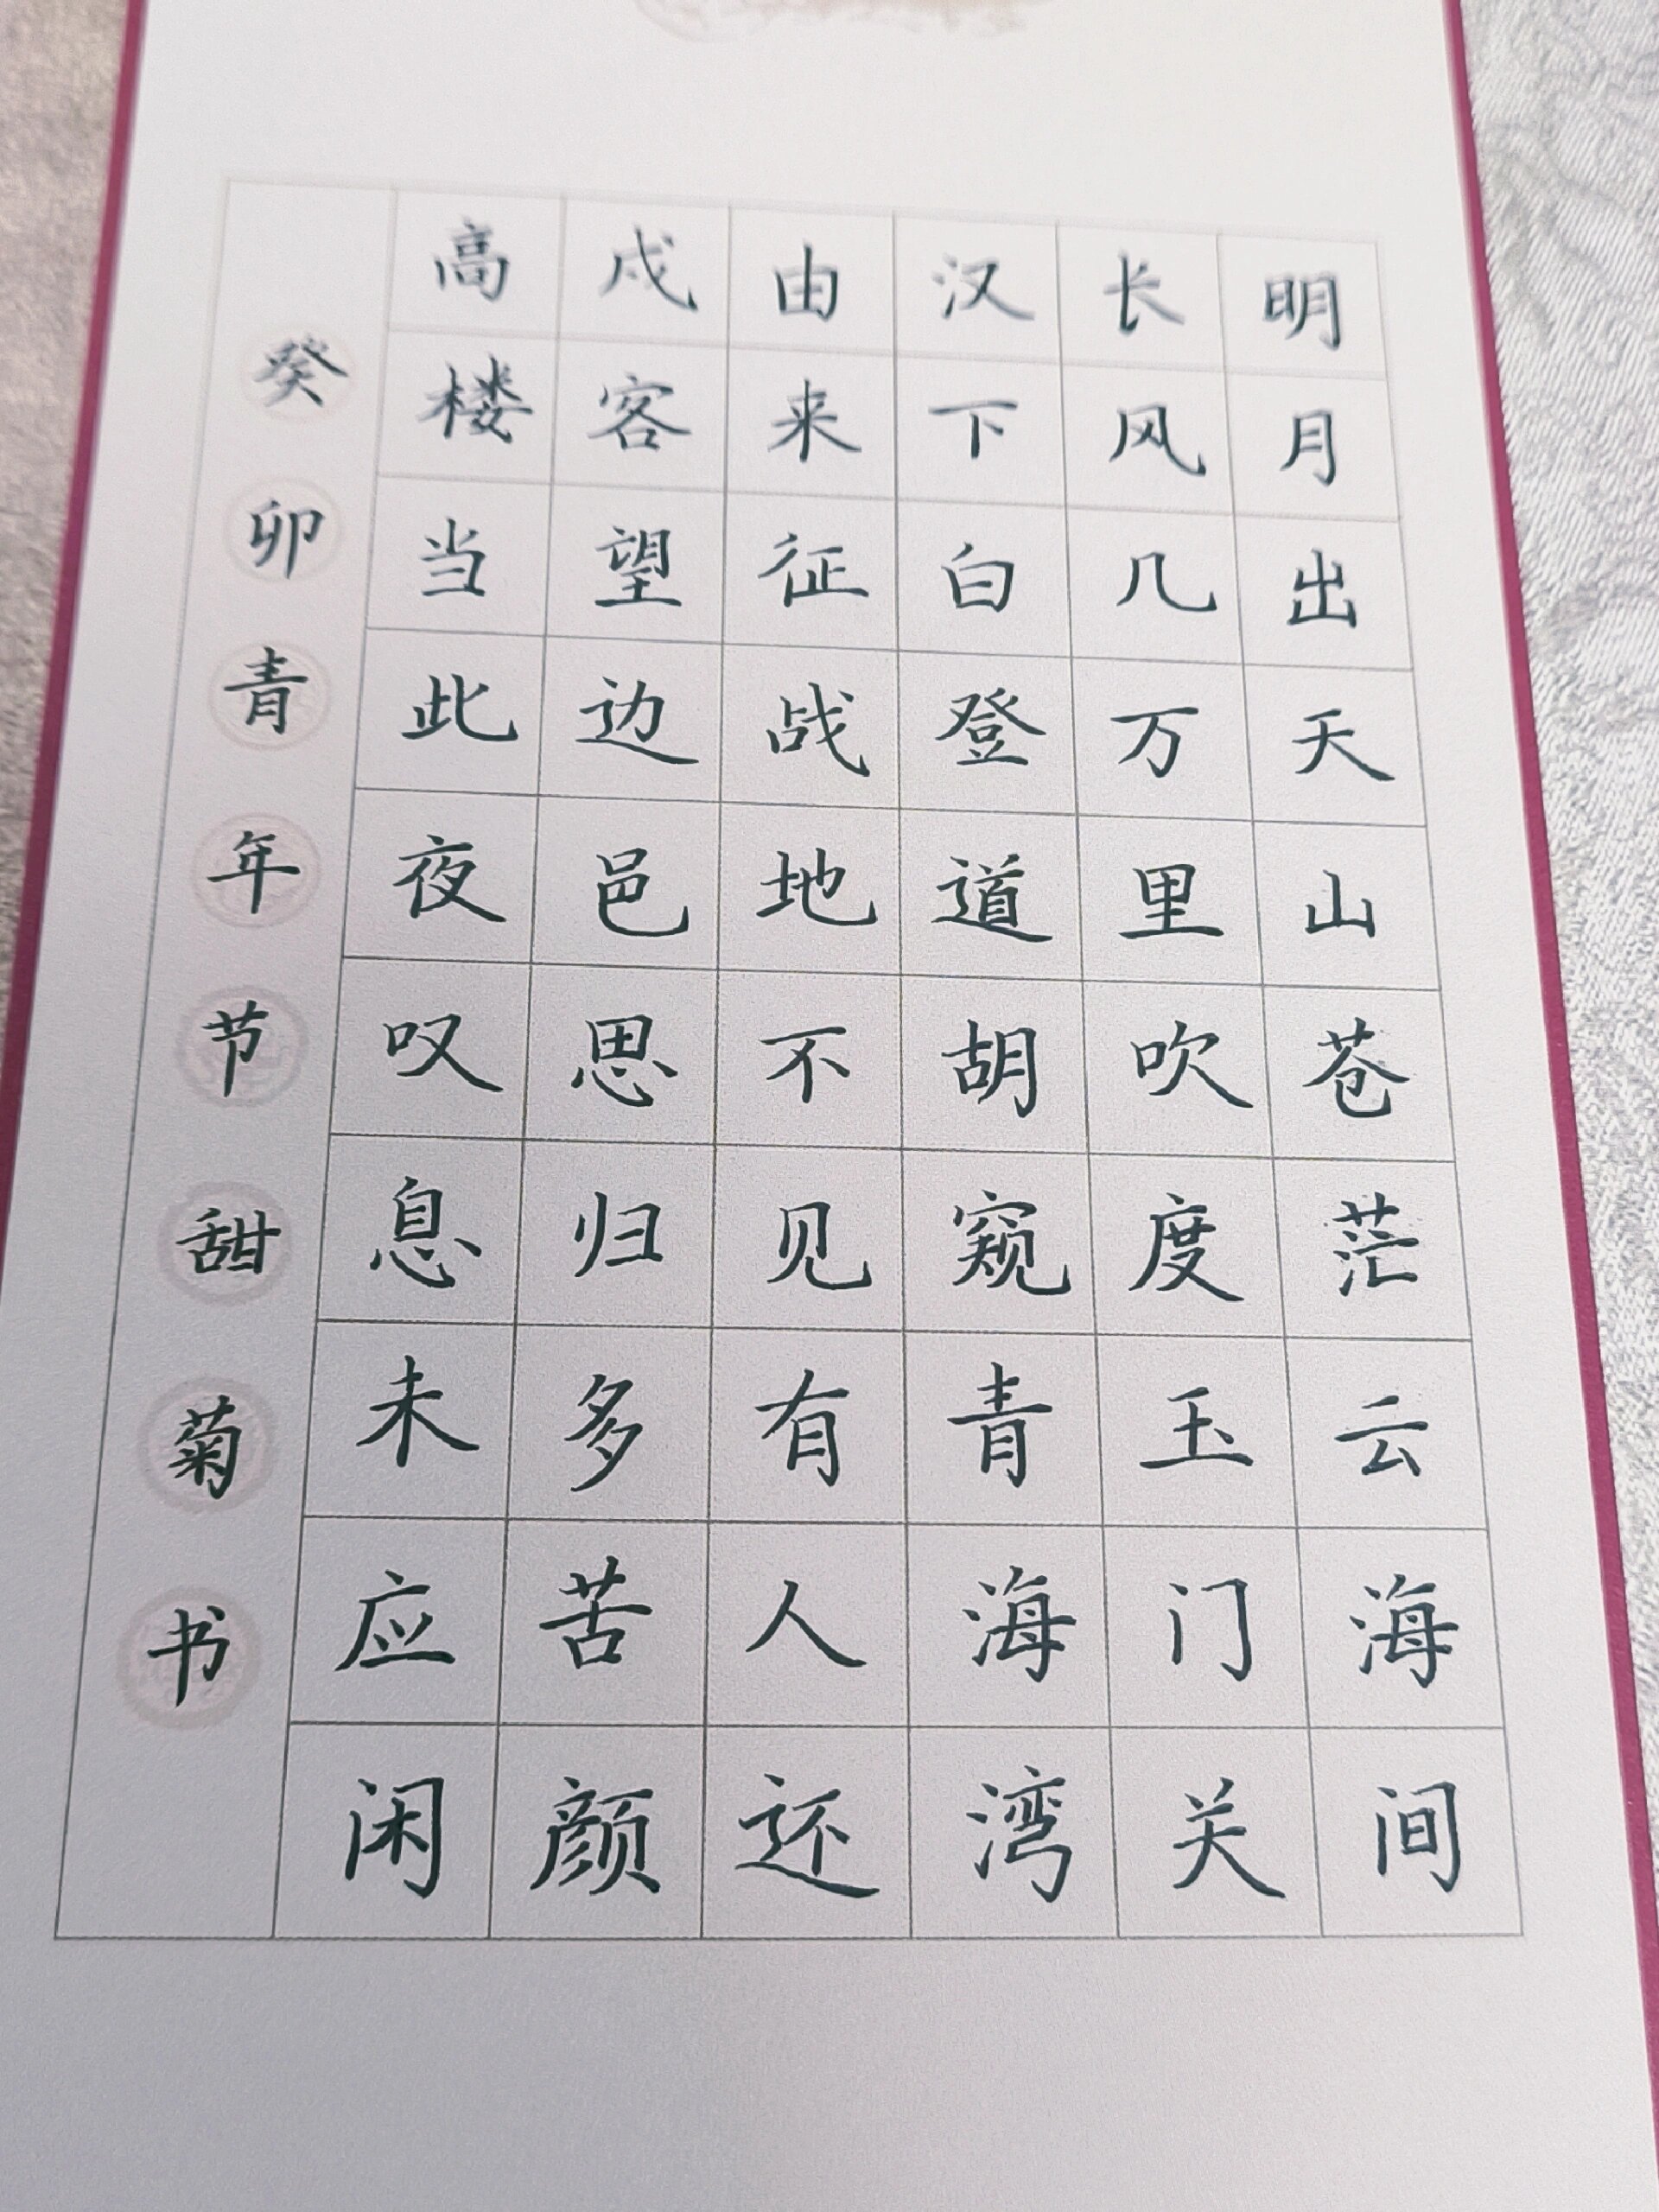 明月出天山苍茫云海间
长风几万里吹度玉门关
汉下白登道胡窥青海湾
由来征战地不见有人还
戍客望边邑思归多苦颜
高楼当此夜叹息未应闲
癸卯青年节甜菊书